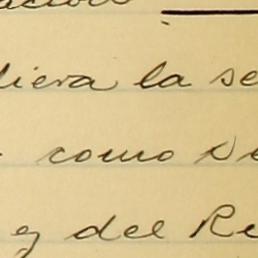 diera la se
como se
y del Re